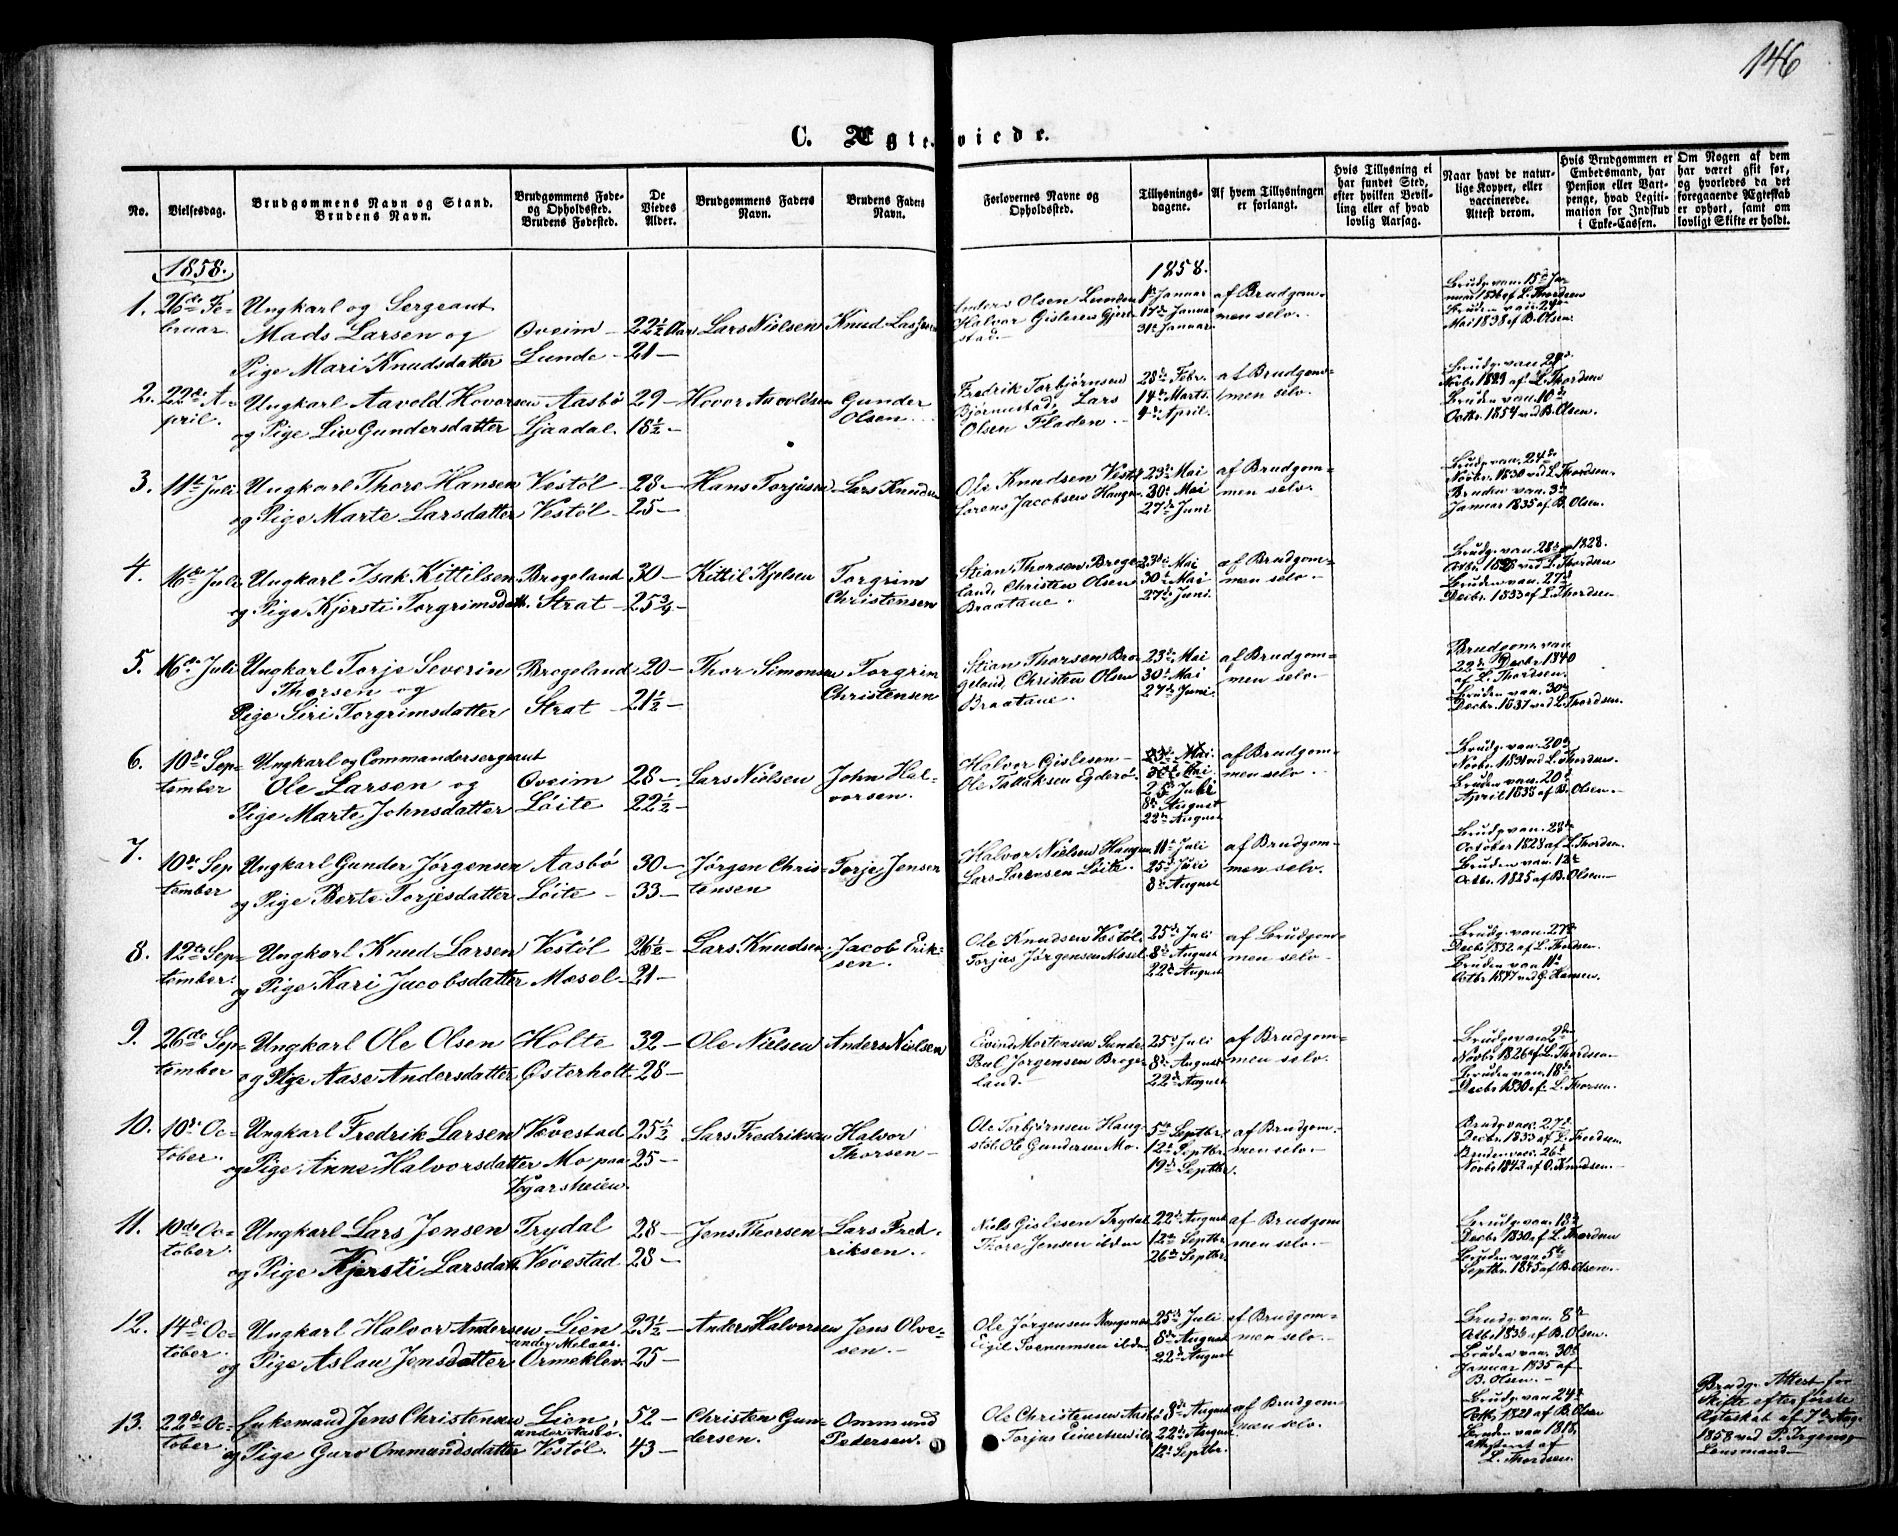 146
C. Ægteviede.
No.
Vielsesdag.
Brudgommens Navn og Stand.
Brudens Navn.
Brudgommens Føde-
og Opholdssted.
Brudens Fødested.
De
Viedes
Alder.
Brudgommens Faders
Navn.
Brudens Faders
Navn.
Forlovernes Navne og
Opholdsted.
Tillysnings-
dagene.
Af hvem Tillysningen
er forlangt.
Hvis Tillysning ei
har fundet Sted,
efter hvilken Bevil-
ling eller af hvad
lovlig Aarsag.
Naar havt de natur-
lige Kopper, eller
vaccinerede.
Attest derom.
Hvis Brudgommen er
Embedsmand, har
Pension eller Vart-
penge, hvad Legiti-
mation for Indskud
i Enke-Cassen.
Om Nogen af dem
har været gift før,
og hvorledes da det
foregaaende Ægteskab
er ophørt, samt om
lovligt Skifte er holdt.
1858.
1858.
1. 26de Fe-
bruar
Ungkarl og Sergeant
Mads Larsen og
Pige Mari Knudsdatter
Oveim
Lunde
22½ Aar
21
Lars Nielsen
Anders Olsen Lunden
Halvor Gislesen Gjert-
stad
17de Januar
31te Januar
af Brudgom-
men selv.
Brudg. vac. 15de Ja-
nuar 1836 af L. Thordsen
Mai 1838 af B. Olsen.
2. 22de A-
pril.
Ungkarl Aavold Hovorsen
og Pige Liv Gundersdatter
Aasbø
Ljaadal.
29
18½
Hovor Aavoldsen
Gunder
Olsen.
Fredrik Torbjørnsen
Bjørnestad, Lars
Olsen Fladen.
28de Febr.
14de Marts
4de April.
af Brudgom-
men selv.
Brudg. vac. 29de
Novbr 1829 af L. Thordsen
Bruden vac. 10de
Octbr. 1854 ved B. Olsen.
3. 11te Juli
Ungkarl Thore Hansen
og Pige Marte Larsdatter
Vestøl
Vestøl
28
25
Hans Torjusen
Lars Knudsen
Ole Knudsen Vestøl
Sørens Jacobsen Haugen
23de Mai
30te Mai
27de Juni
af Brudgom-
men selv.
Brudg. vac. 24de
Novbr. 1830 ved L. Thordsen.
Bruden vac. 3de
Januar 1835 af B. Olsen.
4. 16de Juli
Ungkarl Isak Kittilsen
og Pige Kjersti Torgrimsdatt.
Brogeland
Strat
30
25¾
Kittil Kjelsen
Torgrim
Christensen
Stian Thorsen Broge-
land, Christen Olsen
Braatane.
23de Mai
30te Mai
27de Juni
af Brudgom-
men selv.
Brudg. vac. 28de 1828.
Bruden vac. 27de
Decbr. 1833 af L. Thordsen
5. 16de Juli
Ungkarl Torje Severin
Thorsen og
Pige Siri Torgrimsdatter
Brogeland
Strat
20
21½
Thor Simonsen
Torgrim
Christensen
Stian Thorsen Bro-
geland, Christen Olsen
Braatane.
23de Mai
30te Mai
27de Juni
af Brudgom-
men selv.
Brudgom. vac.
22de Decbr 1840
af L. Thordsen.
Bruden vac. 30te
Decbr. 1837 ved L. Thordsen.
6. 10de Sep-
tember
Ungkarl og Commandersergeant
Ole Larsen og
Pige Marte Johnsdatter
Oveim
Løite
28
22½
Lars Nielsen
John Hal-
vorsen.
Halvor Gislesen
Ole Tallaksen Egderø
23de Mai.
30te Mai
25de Juli
8de August
22de August
af Brudgom-
men selv.
Brudg. vac. 20de
Bruden vac. 20de
April 1835 af B. Olsen.
7. 10de Sep-
tember
Ungkarl Gunder Jørgensen
og Pige Berte Torjesdatter
Aasbø
Løite
30
33
Jørgen Chris-
tensen
Torje Jensen
Halvor Nielsen Haugen
Lars Sørensen Løite.
11te Juli
25de Juli
8de August
af Brudgom-
men selv.
Brudg. vac. 28de
October 1828 af L. Thordsen.
Bruden vac. 12te
Octbr. 1825 af B. Olsen.
8. 12te Sep-
tember.
Ungkarl Knud Larsen
og Pige Kari Jacobsdatter
Vestøl
Mæsel
26½
21
Lars Knudsen.
Jacob Erik-
sen.
Ole Knudsen Vestøl
Torjus Jørgensen Mæsel
25de Juli
8de August
22de August
af Brudgom-
men selv.
Brudg. vac. 27de
Decbr. 1832 af L. Thordsen.
Bruden vac. 11te
Octbr. 1847 ved G. Hansen.
9. 26de Sep-
tember
Ungkarl Ole Olsen
og Pige Aase Andersdatter
Holte
Østerholt
32
28
Ole Nielsen
Anders Nielsen
Eivind Mortensen Sunde
Poul Jørgensen Broge-
land.
25de Juli
8de August
22de August
af Brudgom-
men selv.
Brudg. vac. 2den
Novbr. 1826 af L. Thordsen
Bruden vac. 18de
Decbr. 1830 af L. Thorsen.
10. 10de Oc-
tober.
Ungkarl Fredrik Larsen
og Pige Anne Halvorsdatter
Vævestad
Mo paa
Vegarsheien.
25½
25
Lars Fredriksen
Halvor
Thorsen
Ole Torbjørnsen Haug-
støl, Ole Gundersen Mo.
5te Septbr.
12te Septbr.
19de Septbr.
af Brudgom-
men selv.
Brudg. vac. 27de
Decbr. 1833 af L. Thordsen
Bruden vac. 26de
Novbr 1843 af O. Knudsen.
11. 10de Oc-
tober.
Ungkarl Lars Jensen
og Pige Kjersti Larsdatt.
Trydal
Vævestad
28
28
Jens Thorsen
Lars Fred-
riksen.
Niels Gislesen Trydal
Thore Jensen ibdm
22de August
12te Septbr
26de Septbr.
af Brudgom-
men selv.
Brudg. vac. 13de
Decbr. 1830 af L. Thordsen
Bruden vac. 5te
Septbr. 1845 af B. Olsen.
12. 14de Oc-
tober.
Ungkarl Halvor Andersen
og Pige Aslau Jensdatter
Lien
under Melaas.
Ormeklev.
23½
25
Anders Halvorsen
Jens Olve-
sen.
Ole Jørgensen
25de Juli
8de August
22de August
af Brudgom-
men selv.
Brudg. vac. 8de
Bruden vac. 30te
Januar 1835 af
B. Olsen.
13. 22de Oc-
tober
Enkemand Jens Christensen
og Pige Guro Ommundsdatter
Lien,
under Aasbø.
Vestøl.
52
43
Christen Gun-
dersen.
Ommund
Pedersen.
Ole Christensen Aasbø
Torjus Eivertsen ibd.
8de August
22de August
12te Septbr.
af Brudgom-
men selv.
Brudg. vac. 24de
Bruden vac. 1818,
attesteret af
L. Thordsen.
Brudg. Attest for
Skifte efter første
Ægteskab af 7de Aug.
1858 ved P. Irgens,
Lensmand